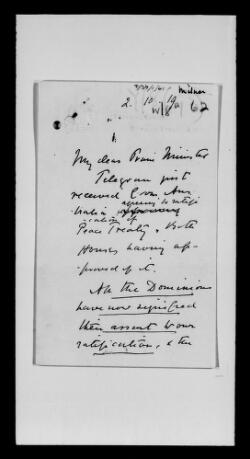 Milner
2. 10. 19
62
My dear Prime Minister
Telegram just
received from Aus-
tralia agreeing to ratifi-
cation of
Peace Treaty, both
Houses having ap-
proved of it.
All the Dominions
have now signified
their assent to our
ratification, & the